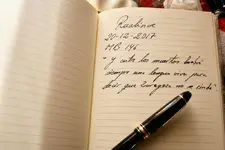 20-12-2017
MG. 196
"y entre los muertos habrá
siempre una lengua viva para
decir que Zaragoza no se rinde"